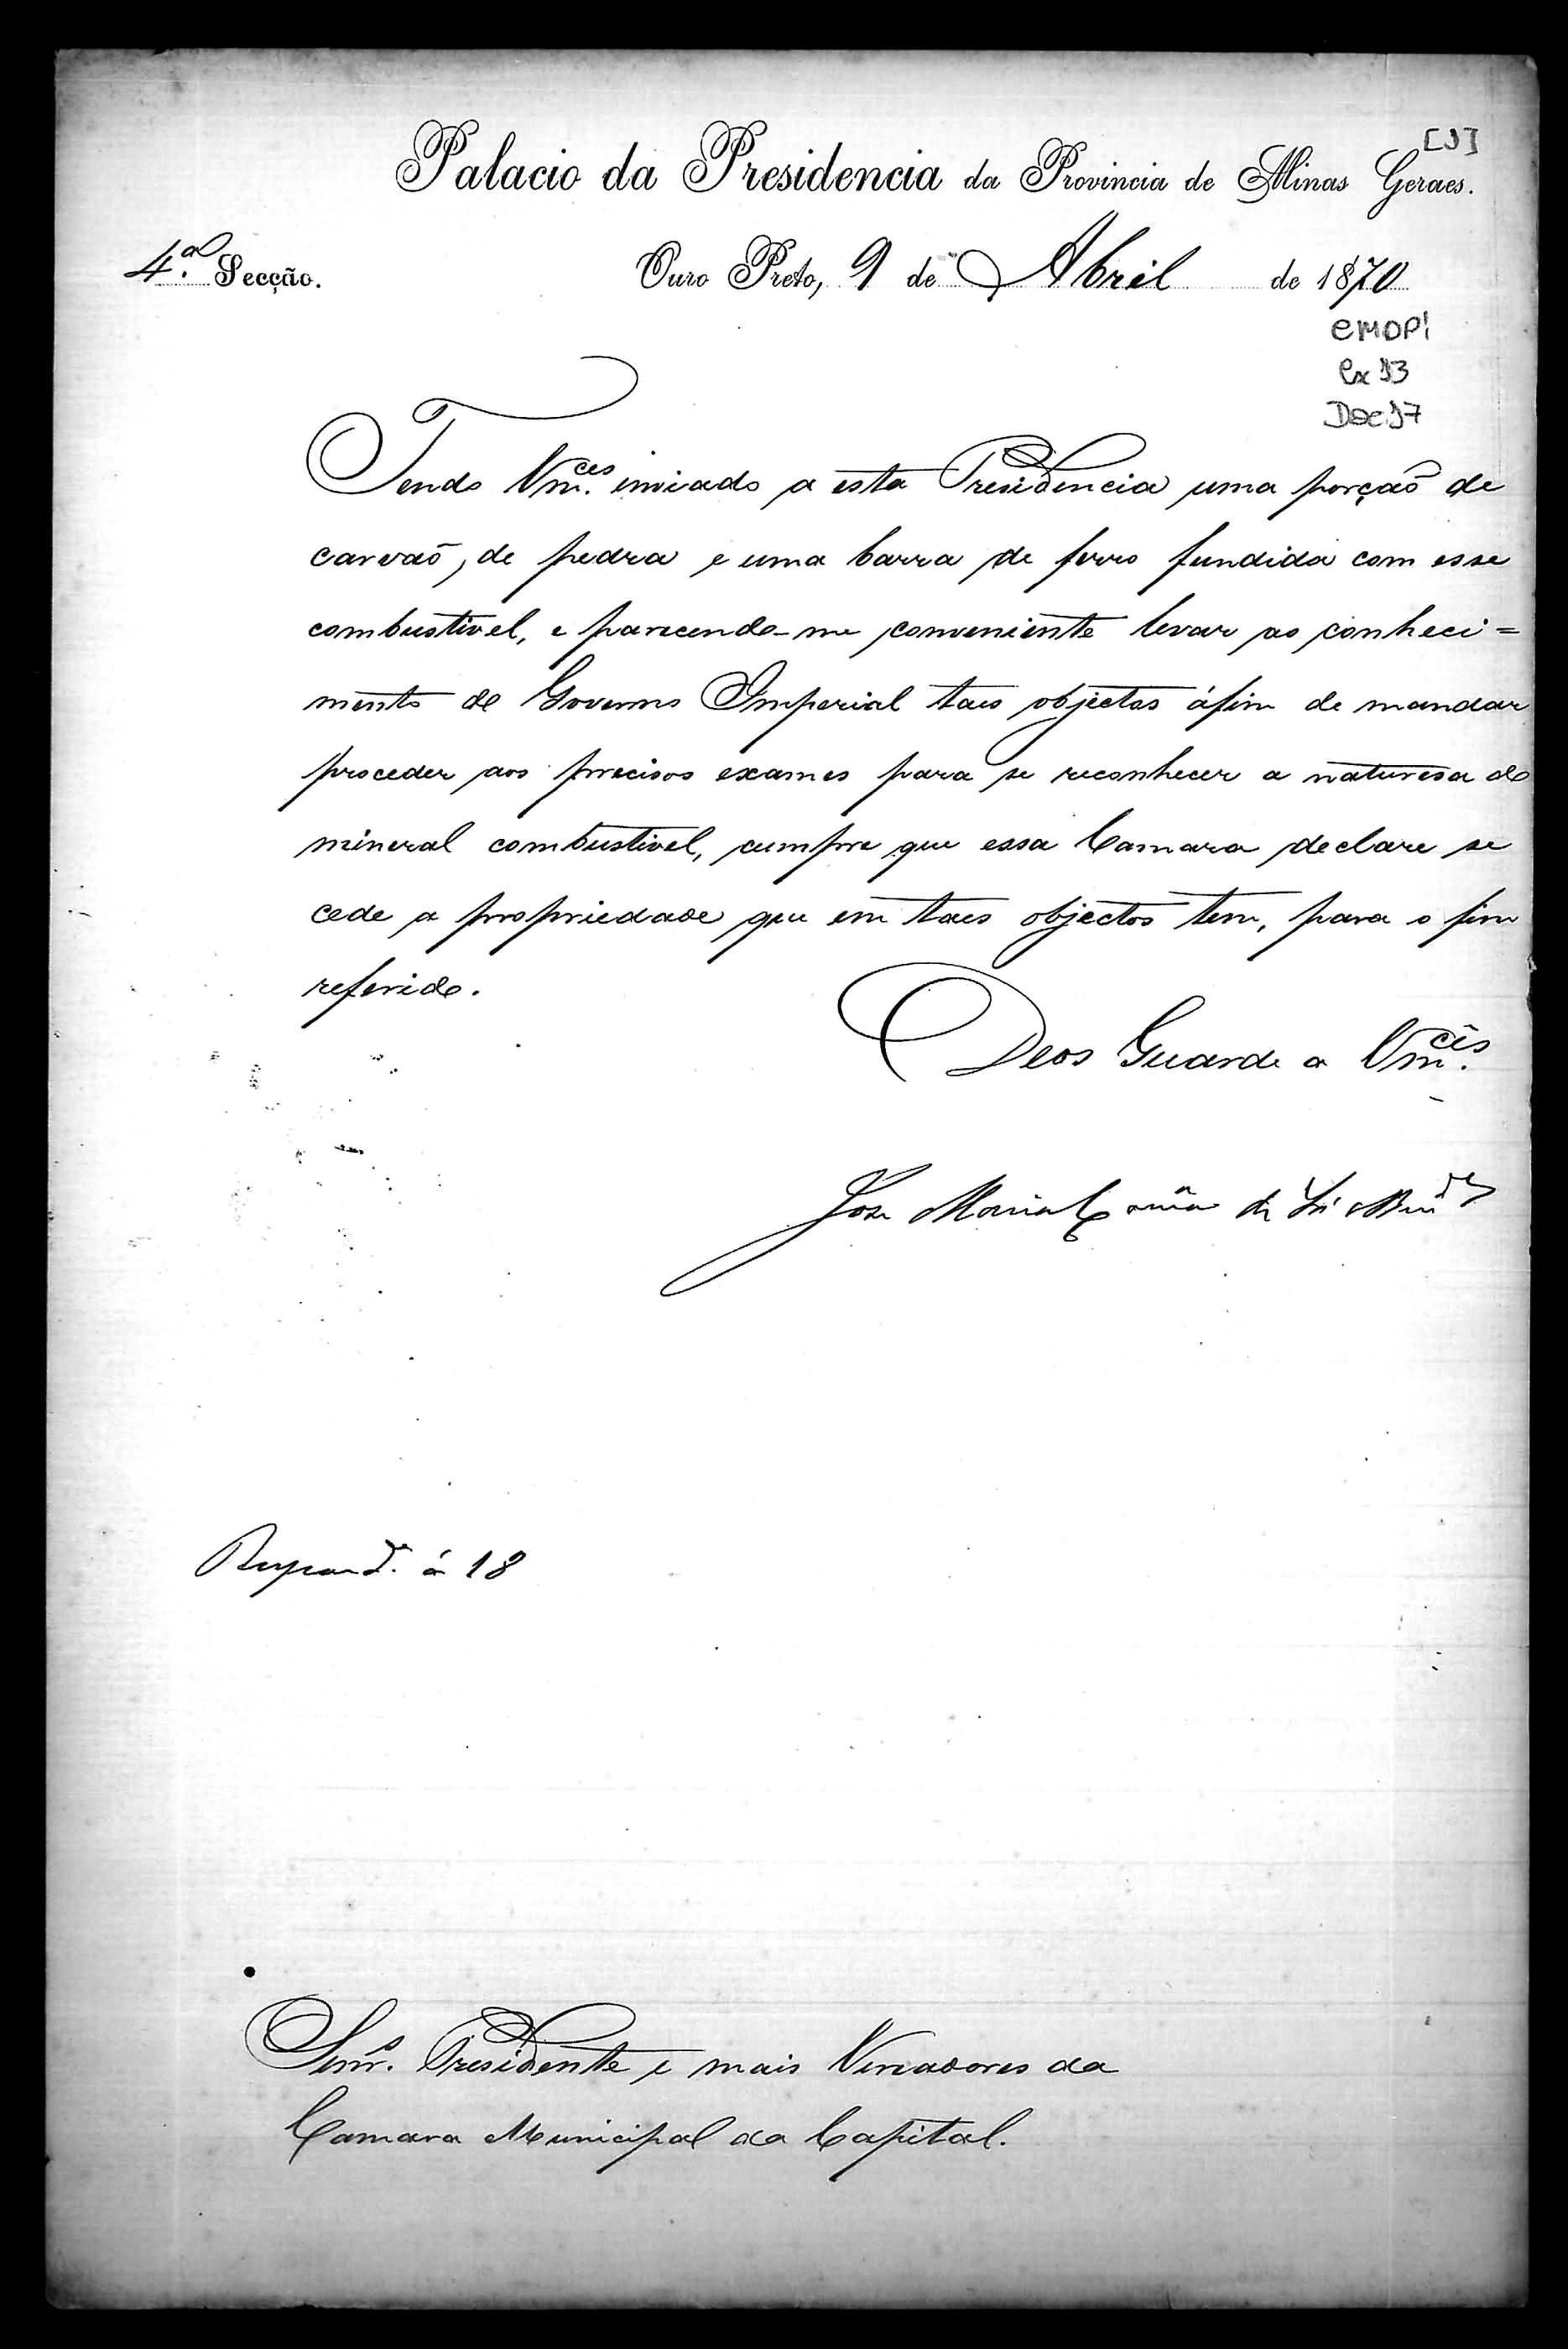 [1]
Palacio da Presidencia da Provincia de Minas Geraes.
4.ª Secção. Ouro Preto, 9 de Abril de 1870
CMOPI
Cx 13
Doc 17
Tendo Vm.ces inviado a esta Presidencia uma porção de
carvão, de pedra e uma barra de ferro fundida com esse
combustivel, e parecendo-me conveniente levar ao conheci=
mento do Governo Imperial taes objectos áfim de mandar
proceder aos precisos exames para se reconhecer a naturesa do
mineral combustivel, cumpre que essa Camara declare se
cede a propriedade que em taes objectos tem, para o fim
referido.
Deos Guarde a Vm.ces
José Maria Corrêa de Sá e Ben.des
Respond.º á 18
Snr.s Presidente e mais Vereadores da
Camara Municipal da Capital.